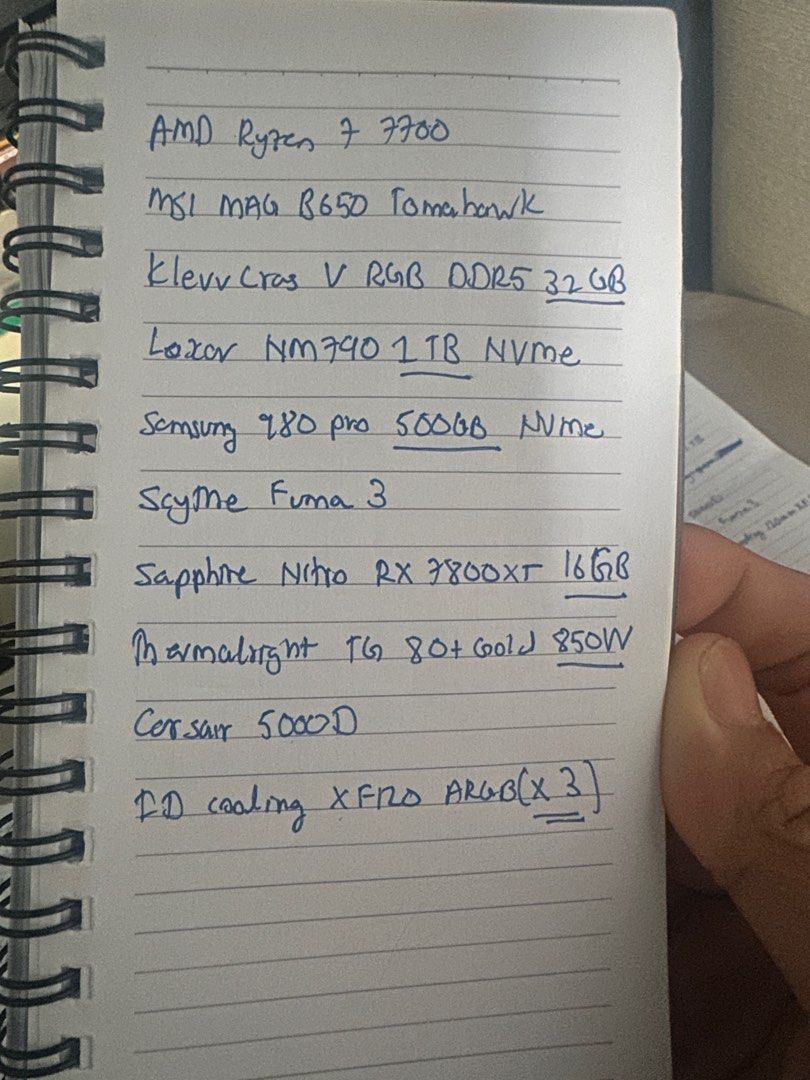 AMD Ryzen 7 7700
MSI MAG B650 Tomahawk
Klevv Cras V RGB DDR5 32GB
Lexar NM790 1TB NVme
Samsung 980 pro 500GB NVme
Scythe Fuma 3
Sapphire Nitro RX 7800XT 16GB
Thermalright TG 80+ Gold 850W
Corsair 5000D
ID cooling XF120 ARGB (x3)